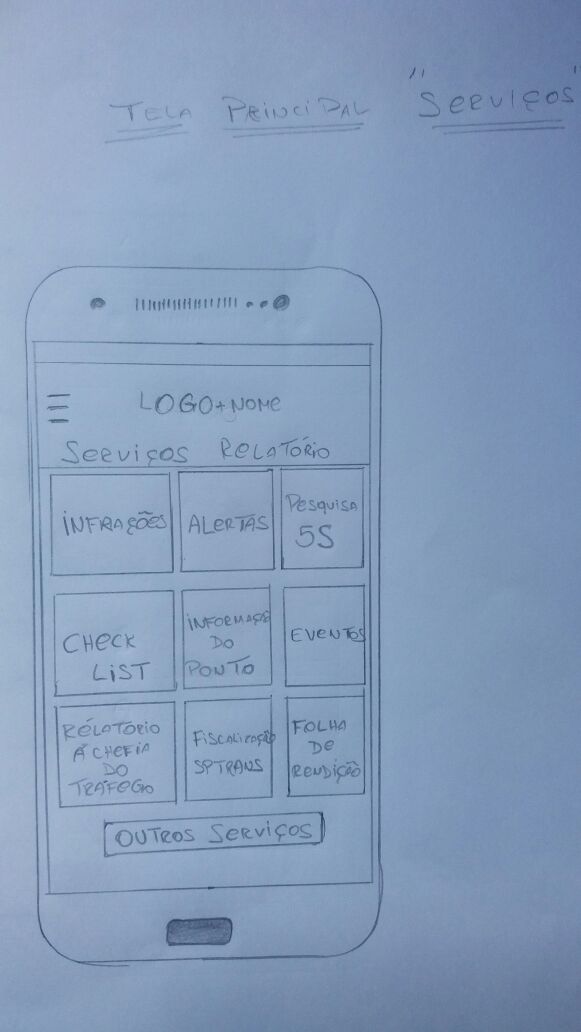 TELA PRINCIPAL "SERVIÇOS"
LOGO+NOME
SERVIÇOS RELATÓRIO
INFRAÇÕES
ALERTAS
PESQUISA
5S
CHECK
LIST
INFORMAÇÃO
DO
PONTO
EVENTOS
RELATÓRIO
À CHEFIA
DO
TRÁFEGO
FISCALIZAÇÃO
SPTRANS
FOLHA
DE
RENDIÇÃO
OUTROS SERVIÇOS